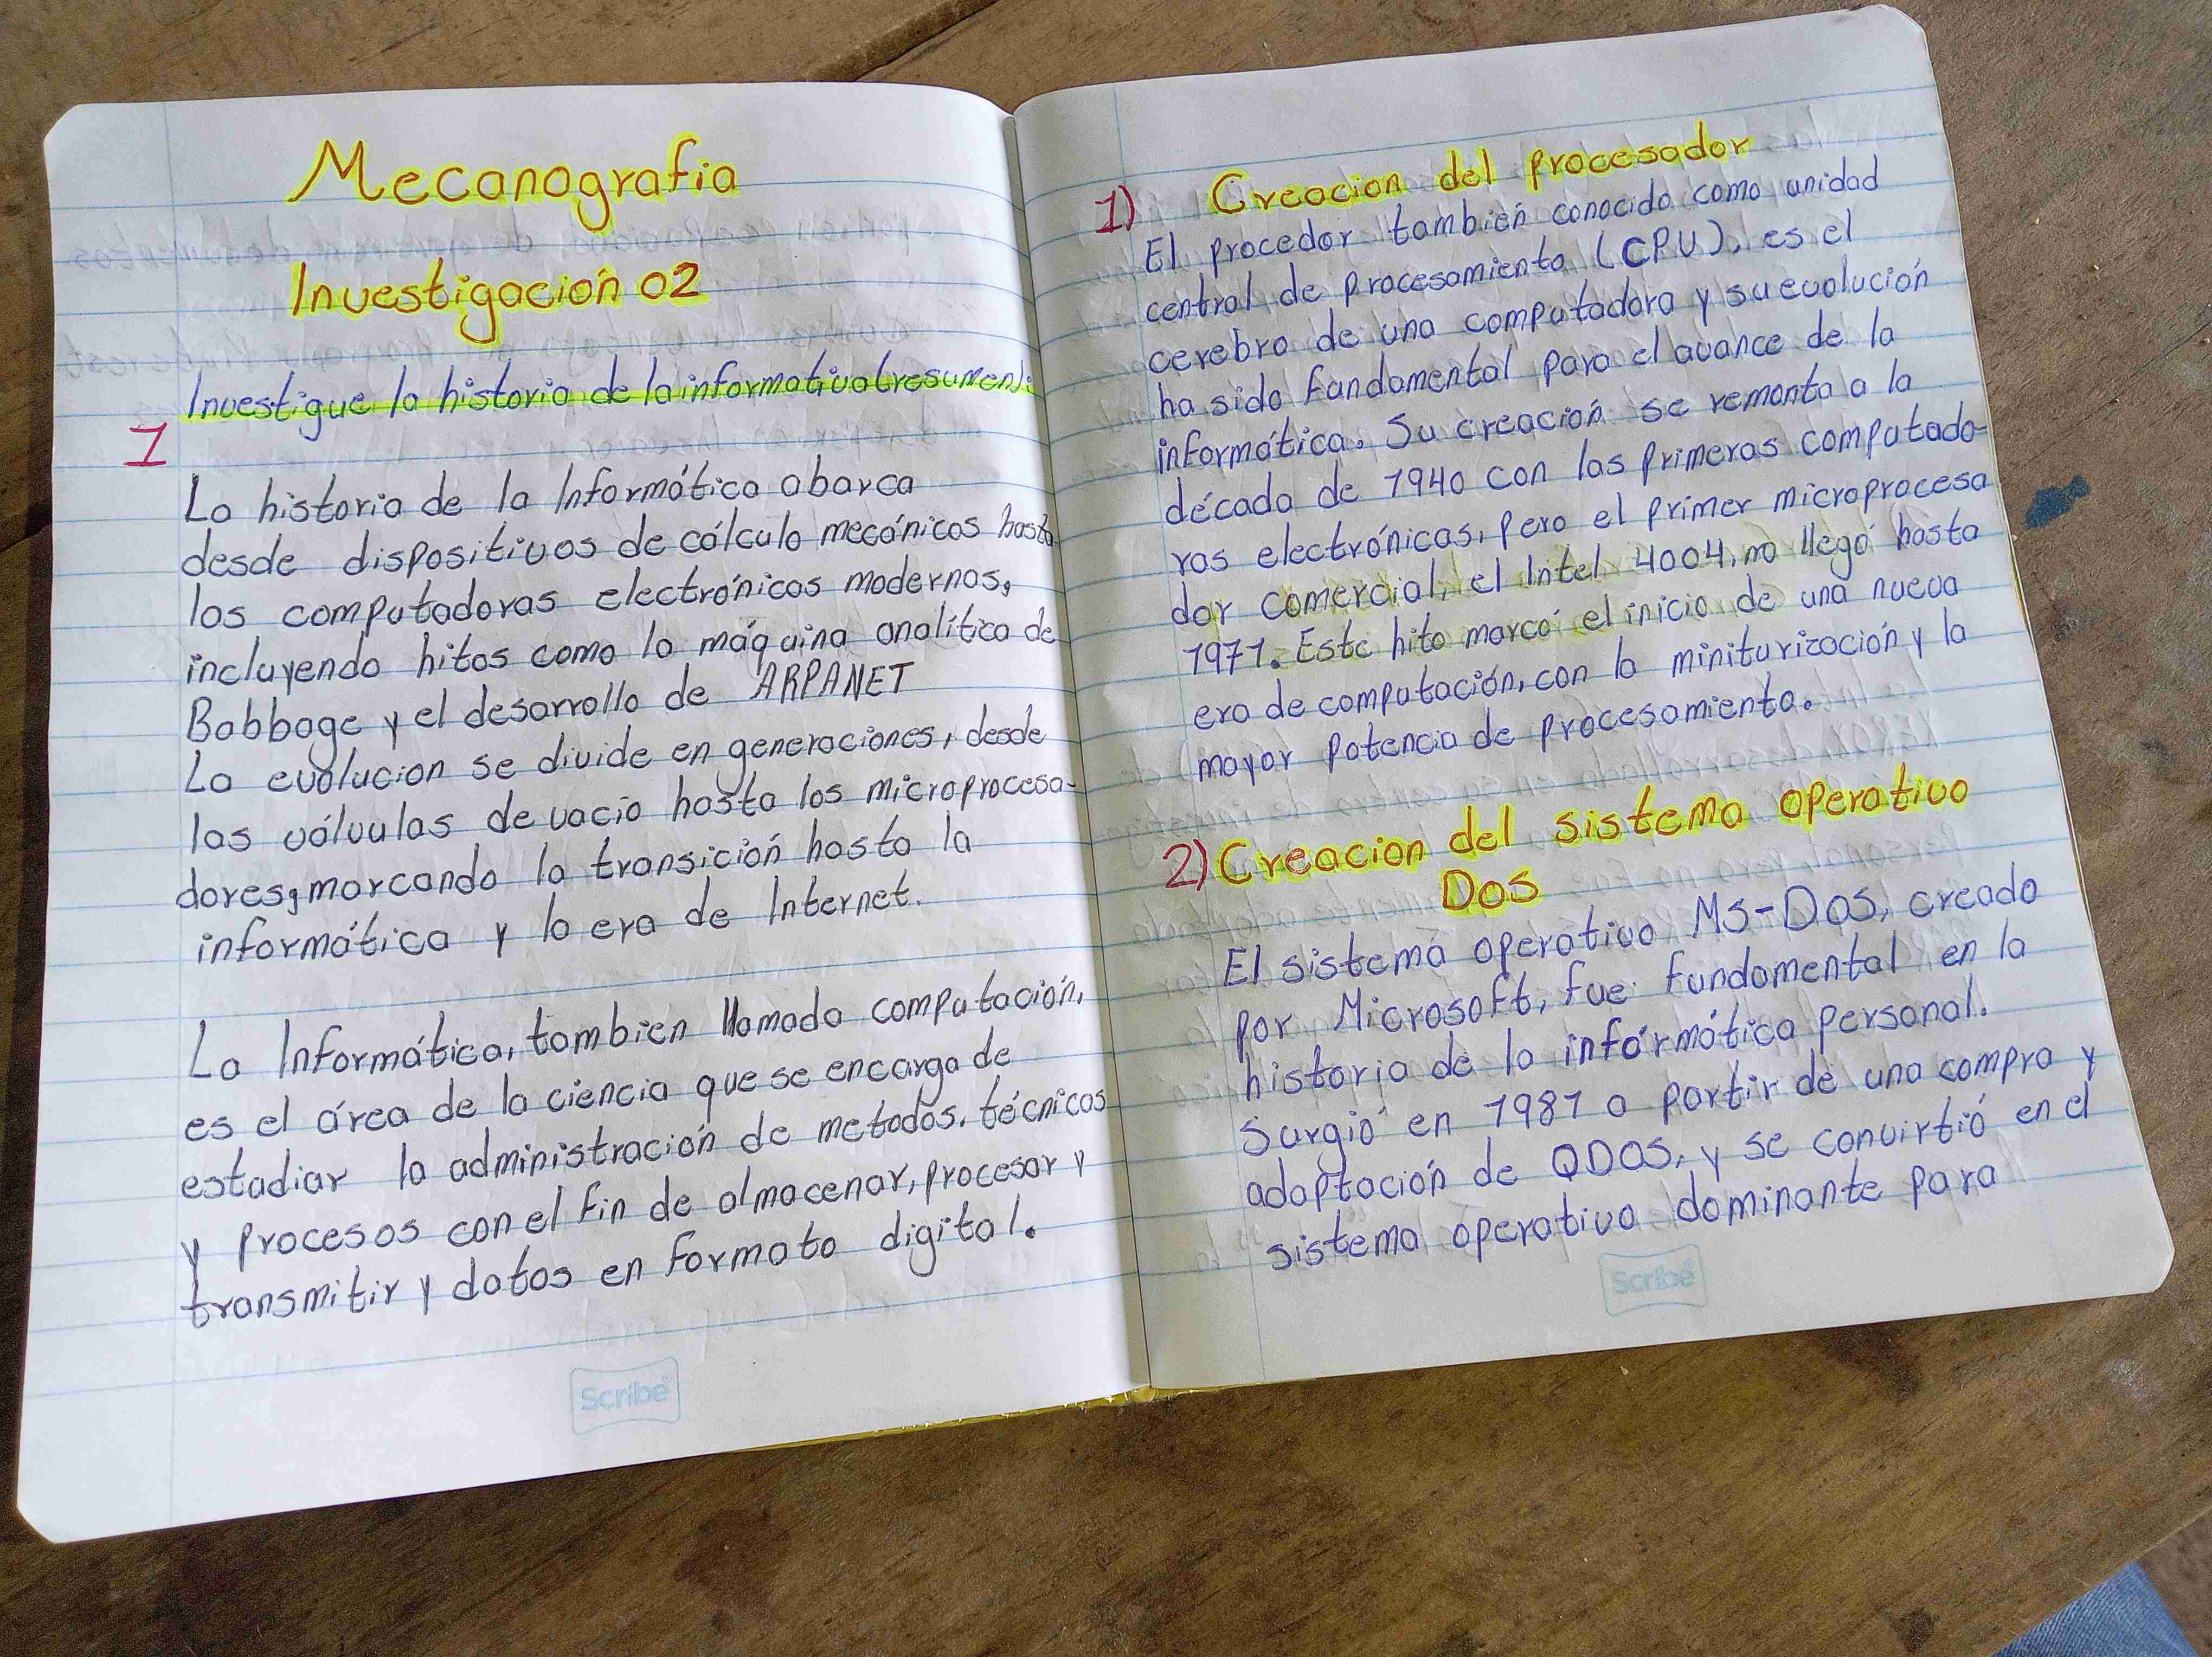 Mecanografia
Investigación 02
Investigue la historia de la informativa(resumen):
I
La historia de la Informática abarca
desde dispositivos de cálculo mecánicos hasta
las computadoras electrónicas modernas,
incluyendo hitos como la máquina analítica de
Babbage y el desarrollo de ARPANET
La evolucion se divide en generaciones, desde
las válvulas de vacio hasta los microprocesa-
dores, marcando la transición hasta la
informática y la era de Internet.
La Informática, tambien llamada computación,
es el área de la ciencia que se encarga de
estudiar la administración de metodos, técnicas
y procesos con el fin de almacenar, procesar y
transmitir y datos en formato digital.
Scribe
1) Creacion del procesador
El procedor también conocido como unidad
central de procesamiento (CPU), es el
cerebro de una computadora y su evolución
ha sido fundamental para el avance de la
informática. Su creación se remonta a la
década de 1940 con las primeras computado-
ras electrónicas, pero el primer microprocesa
dor comercial, el Intel 4004, no llegó hasta
1971. Este hito marcó el inicio de una nueva
era de computación, con la miniturización y la
mayor potencia de procesamiento.
2) Creacion del sistema operativo
DOS
El sistema operativo MS-DOS, creado
por Microsoft, fue fundamental en la
historia de la informática personal.
Surgió en 1981 a partir de una compra y
adaptación de QDOS, y se convirtió en el
sistema operativo dominante para
Scribe